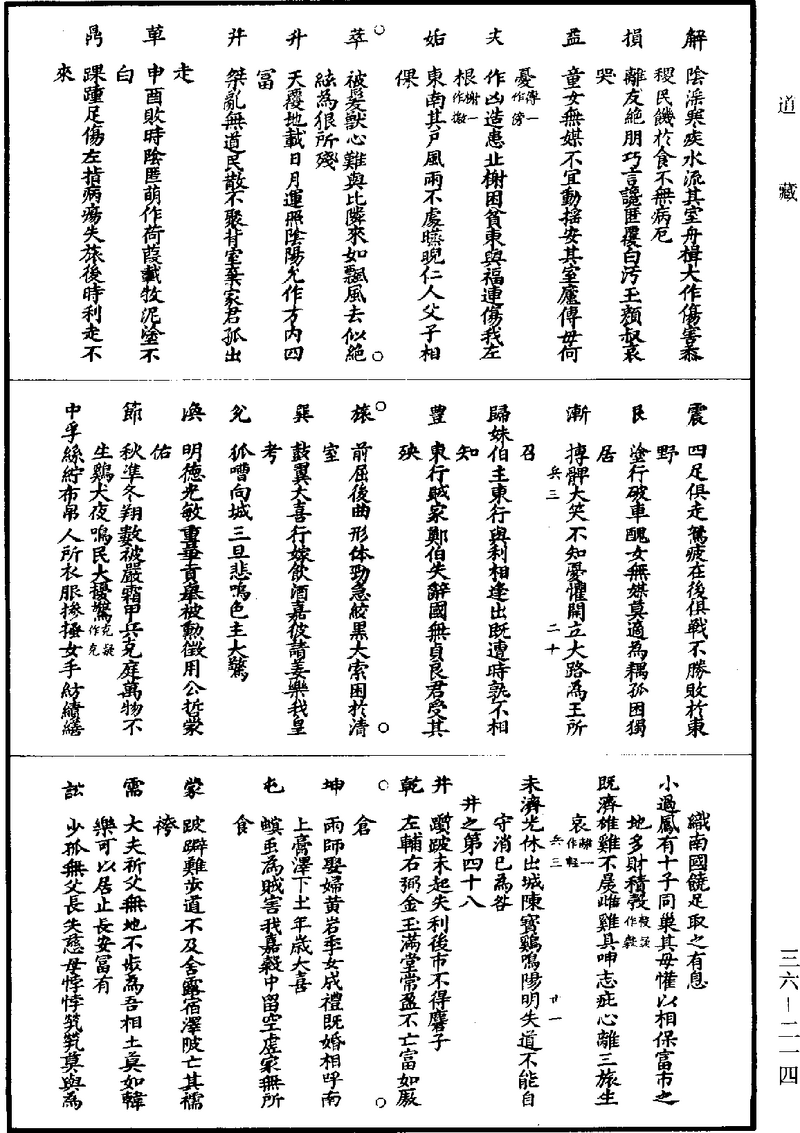 道藏
解 陰淫寒疾水流其室舟楫大作傷害黍
稷民饑於食不無病厄
損 離友絕朋巧言讒慝覆白污玉顏叔哀
哭
益 童女無媒不宜動搖安其室廬傅母何
憂傅一作傍
夬 作凶造患北榭困貧東與福連傷我左
根榭一作檄
姤 東南其戶風雨不處曣晛仁人父子相
保
萃 被髮獸心難與比隣來如飄風去似絕
絃為狼所殘
升 天覆地載日月運照陰陽允作方內四
富
井 桀亂無道民散不聚背室棄家君孤出
走
革 申酉敗時陰慝萌作荷葭載牧泥塗不
白
鼎 踝踵足傷左指病瘍失旅後時利走不
來
震 四足俱走駑疲在後俱戰不勝敗於東
野
艮 塗行破車醜女無媒莫適為耦孤困獨
居
漸 摶髀大笑不知憂懼開立大路為王所
召
兵三 二十
歸妹 伯主東行與利相逢出既遭時孰不相
知
豐 東行賊家鄭伯失辭國無貞良君受其
殃
旅 前屈後曲形体勁急絞黑大索困於清
室
巽 鼓翼大喜行嫁飲酒嘉彼諸姜樂我皇
考
兌 狐嘈向城三旦悲鳴邑主大驚
渙 明德光敏重華貢舉被勳徵用公哲蒙
佑
節 秋準冬翔數被嚴霜甲兵克庭萬物不
生鷄犬夜鳴民大擾驚克疑作充
中孚 絲紵布帛人所衣服摻摻女手紡績繕
織南國饒足取之有息
小過 鳳有十子同巢其母懽以相保富市之
地多財積穀
既濟 雄雞不晨雌雞且呻志疵心離三旅生
哀離一作輕
兵三 廿一
未濟 光休出城陳寶鷄鳴陽明失道不能自
守消亡為咎
井之第四十八
井 躓跛未起失利後市不得麞子
乾 左輔右弼金玉滿堂常盈不亡富如厫
倉
坤 雨師娶婦黃岩季女成禮既婚相呼南
上膏澤下土年歲大喜
屯 螟虫為賊害我嘉穀中留空虛家無所
食
蒙 跛躃難步道不及舍露宿澤陂亡其襦
袴
需 大夫祈父無地不步為吾相土莫如韓
樂可以居止長安富有
訟 少孤無父長失慈母悖悖煢煢莫與為
三六—二一四